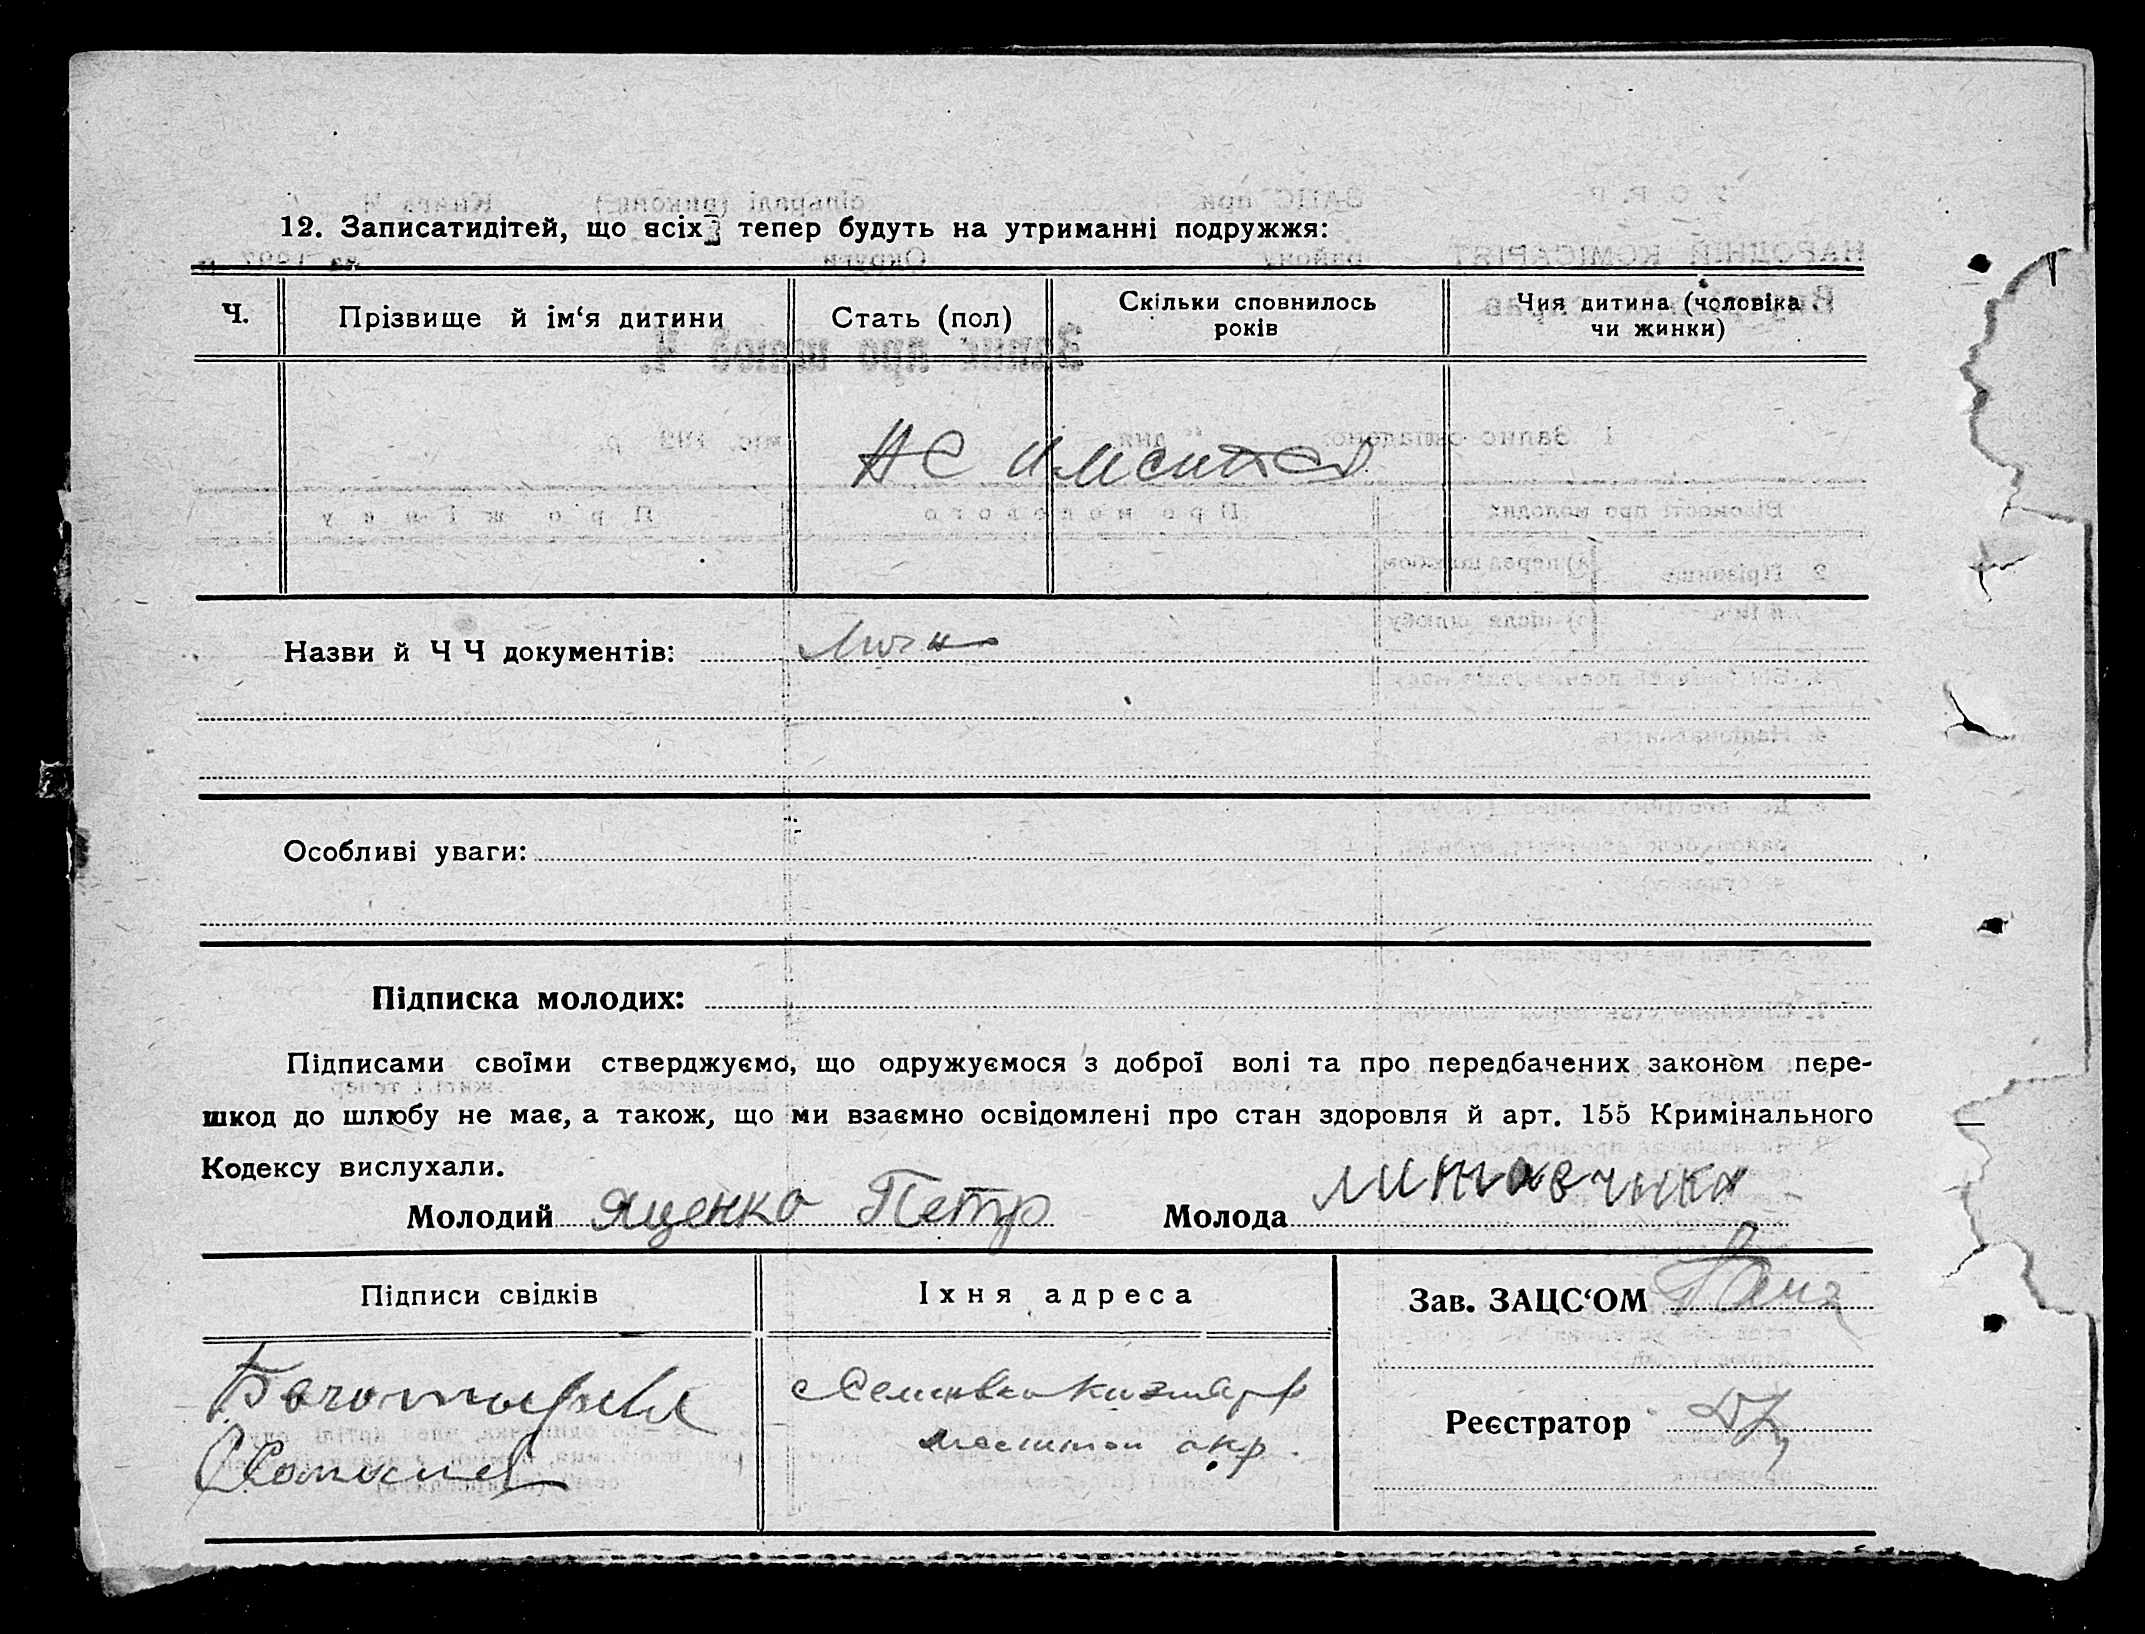 12. Записатидітей, що всіх тепер будуть на утриманні подружжя:
Ч.
Прізвище й ім‘я дитини
Стать (пол)
Скільки сповнилось
років
Чия дитина (чоловіка
чи жинки)
не имеится
Назви й ЧЧ документів:
Особливі уваги:
Підписка молодих:
Підписами своїми стверджуємо, що одружуємося з доброї волі та про передбачених законом пере-
шкод до шлюбу не має, а також, що ми взаємно освідомлені про стан здоровля й арт. 155 Кримінального
Кодексу вислухали.
Молодий Яценко Петр
Молода
Підписи свідків
Їхня адреса
Зав. ЗАЦС‘ОМ
Реєстратор
окр.